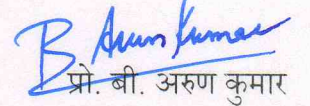 B. Arun Kumar
प्रो. बी. अरुण कुमार